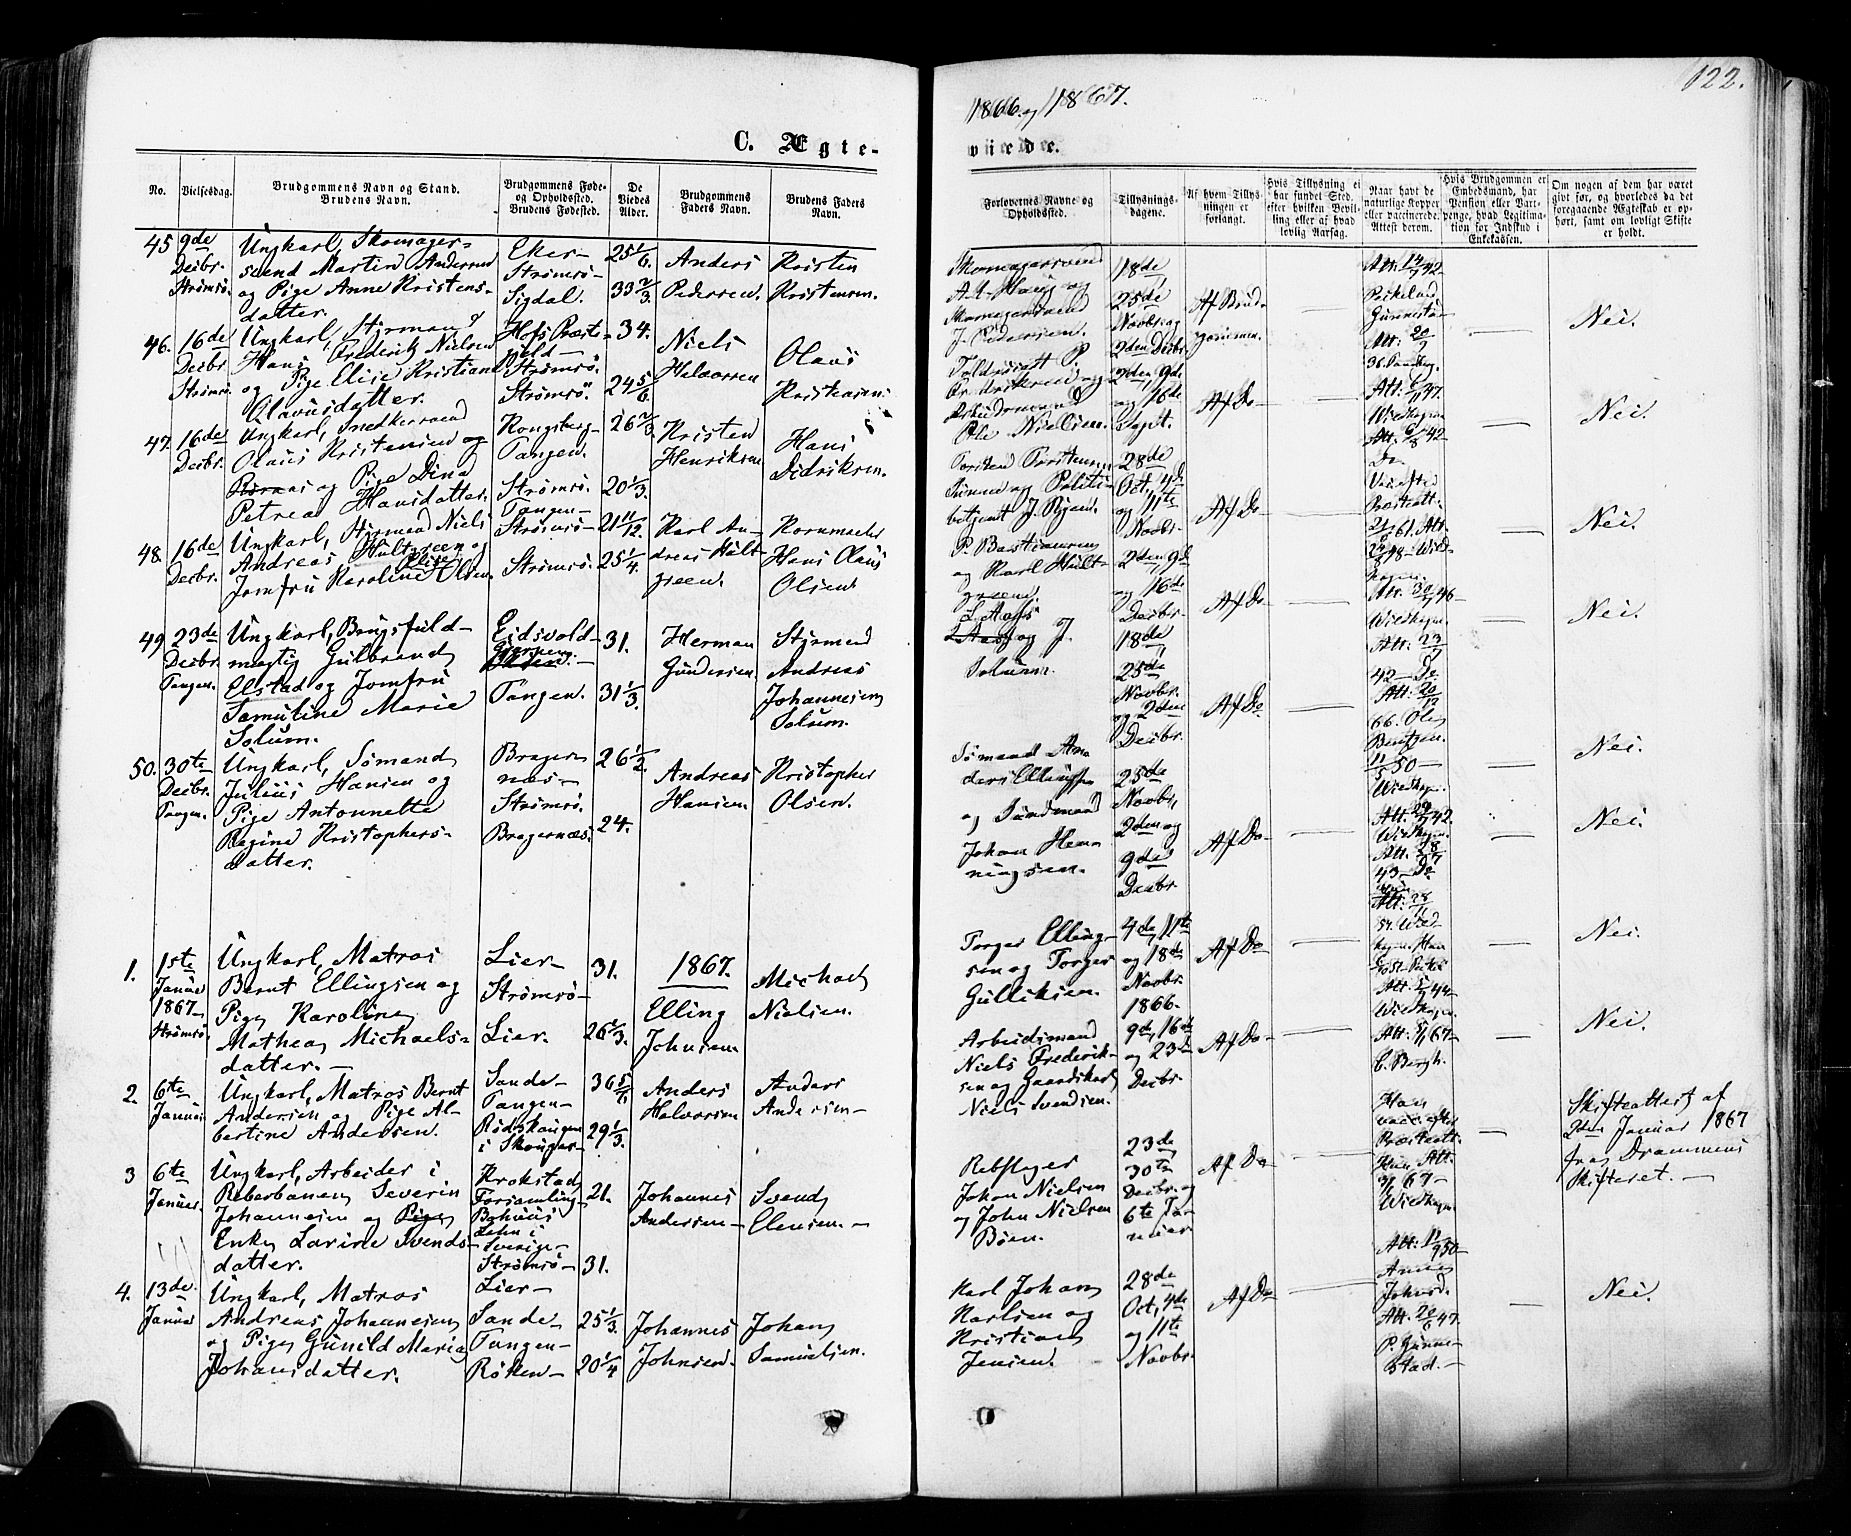 122.
1866 og 1867.
C. Ægte-
viede.
No.
Vielsesdag.
Brudgommens Navn og Stand.
Brudens Navn.
Brudgommens Føde-
og Opholdssted.
Brudens Fødested.
De
Viedes
Alder.
Brudgommens
Faders Navn.
Brudens Faders
Navn.
Forlovernes Navne og
Opholdssted.
Tillysnings-
dagene.
Af hvem Tillys-
ningen er
forlangt.
Hvis Tillysning ei
har fundet Sted.
efter hvilken Bevil-
ling eller af hvad
lovlig Aarsag.
Naar havt de
naturlige Kopper
eller vaccinerede.
Attest derom.
Hvis Brudgommen er
Embedsmand, har
Pension eller Vart-
penge, hvad Legitima-
tion for Indskud i
Enkekassen.
Om nogen af dem har været
gift før, og hvorledes da det
foregaaende Ægteskab er op-
hørt, samt om lovligt Skifte
er holdt.
45
9de
Decbr.
Strømsø.
Ungkarl, Skomager-
svend Martin Andersen
og Pige Anne Kristens-
datter.
Eker-
Strømsø-
Sigdal.
25 1/6.
33 2/3.
Anders
Pedersen.
Kristen
Kristensen.
Skomagersvend
Skomagersvend
J. Pedersen.
18de
25de
Novbr. og
2den Decbr.
Af Brud-
gommen.
Nei.
46.
16de
Decbr.
Strømsø.
Ungkarl, Styrmand
Hans Frederik Nielsen
og Pige Elise Kristiane
Olavusdatter.
Hofs Præste-
gjeld-
Strømsø.
Strømsø.
34.
24 5/6.
Niels
Halvorsen
Olaus
Kristensen.
Ole Nielsen.
2den, 9de
og 16de
Septt.
Af Do-
Nei.
47.
16de
Decbr.
Ungkarl, Snedkersvend
Olaus Kristensen og
Pige Dina
Petrea Hansdatter.
Kongsberg-
Tangen.
Strømsø.
Tangen-
26 2/3.
20 1/3.
Kristen
Henriksen
Hans
Didriksen.
28de
Oct, 4de
og 11te
Novbr.
Af Do-
Nei.
48.
16de
Decbr.
Ungkarl, Styrmand Niels
Andreas Hultgreen og
Jomfru Karoline Elise Olsen.
Strømsø-
Strømsø.
21 11/12.
25 1/4.
Karl An-
dreas Hult-
green.
Kornmaaler
Hans Olaus
Olsen.
P. Bastiansen
og Karl Hult-
green.
2den, 9de
og 16de
Decbr.
Af Do-
Nei.
49
23de
Decbr.
Tangen.
Ungkarl, Brugsfuld-
mægtig Gulbrand
Elstad og Jomfru
Samuline Marie
Solum.
Eidsvold-
Tangen.
31.
31 1/3.
Herman
Gundersen
Styrmand
Andreas
Johannesen
Solum.
og J.
Solum.
18de
25de
Novbr.
og 2den
Decbr.
Af Do
Nei.
50.
30te
Decbr.
Tangen.
Ungkarl, Sømand
Julius Hansen og
Pige Antonnette
Regine Kristophers-
datter.
Brager-
næs-
Strømsø.
Bragernæs.
26 1/2.
24.
Andreas
Hansen.
Kristopher
Olsen.
Sømand An-
ders Ellingsen
og Sømand
Johan Hen-
ningsen.
25de
Novbr,
2den og
9de
Decbr.
Af Do-
Nei.
1867.
1.
1ste
Januar
1867
Strømsø.
Ungkarl, Matros
Bernt Ellingsen og
Pige Karoline
Mathea Michaels-
datter.-
Lier-
Strømsø-
Lier.
31.
26 1/3.
Elling
Johnsen.
Michael
Nielsen.
Torger Elling-
sen og Torger
Gulliksen.
4de, 11te
og 18de
Novbr.
1866.
Af Do-
Nei.
2.
6te
Januar
Ungkarl, Matros Bernt
Andersen og Pige Al-
bertine Andersen.
Sande-
Tangen-
Rødskougen
i Skouger-
36 5/6.
29 1/3.
Anders
Halvorsen
Anders
Andersen-
Arbeidsmand
Niels Frederik-
sen og Gaardskarl
Niels Svendsen.
9de, 16de
og 23de
Decbr.
Af Do-
Nei.
3
6te
Januar.
Ungkarl, Arbeider i
Reberbanen Severin
Johannesen og Pige
Enke Lavine Svends-
datter.
Krokstad
Forsamling
Bohuus
Lehn i
Sverige-
Strømsø-
21.
31.
Johannes
Andersen-
Svend
Elensen.-
Rebslager
Johan Nielsen
og John Nielsen
Boen.
23de
30te
Decbr. og
6te Ja-
nuar
Af Do-
Skifteattest af
2den Januar 1867
fra Drammens
Skifteret.-
4.
13de
Januar
Ungkarl, Matros
Andreas Johannesen
og Pige Gunild Maria
Johansdatter.
Lier-
Sande-
Tangen-
Røken-
25 1/3.
20 1/4
Johannes
Johnsen.
Johan
Samuelsen.
Karl Johan
Karlsen og
Kristian
Jensen.
28de
Oct, 4de
og 11te
Novbr.
Af Do-
Nei.